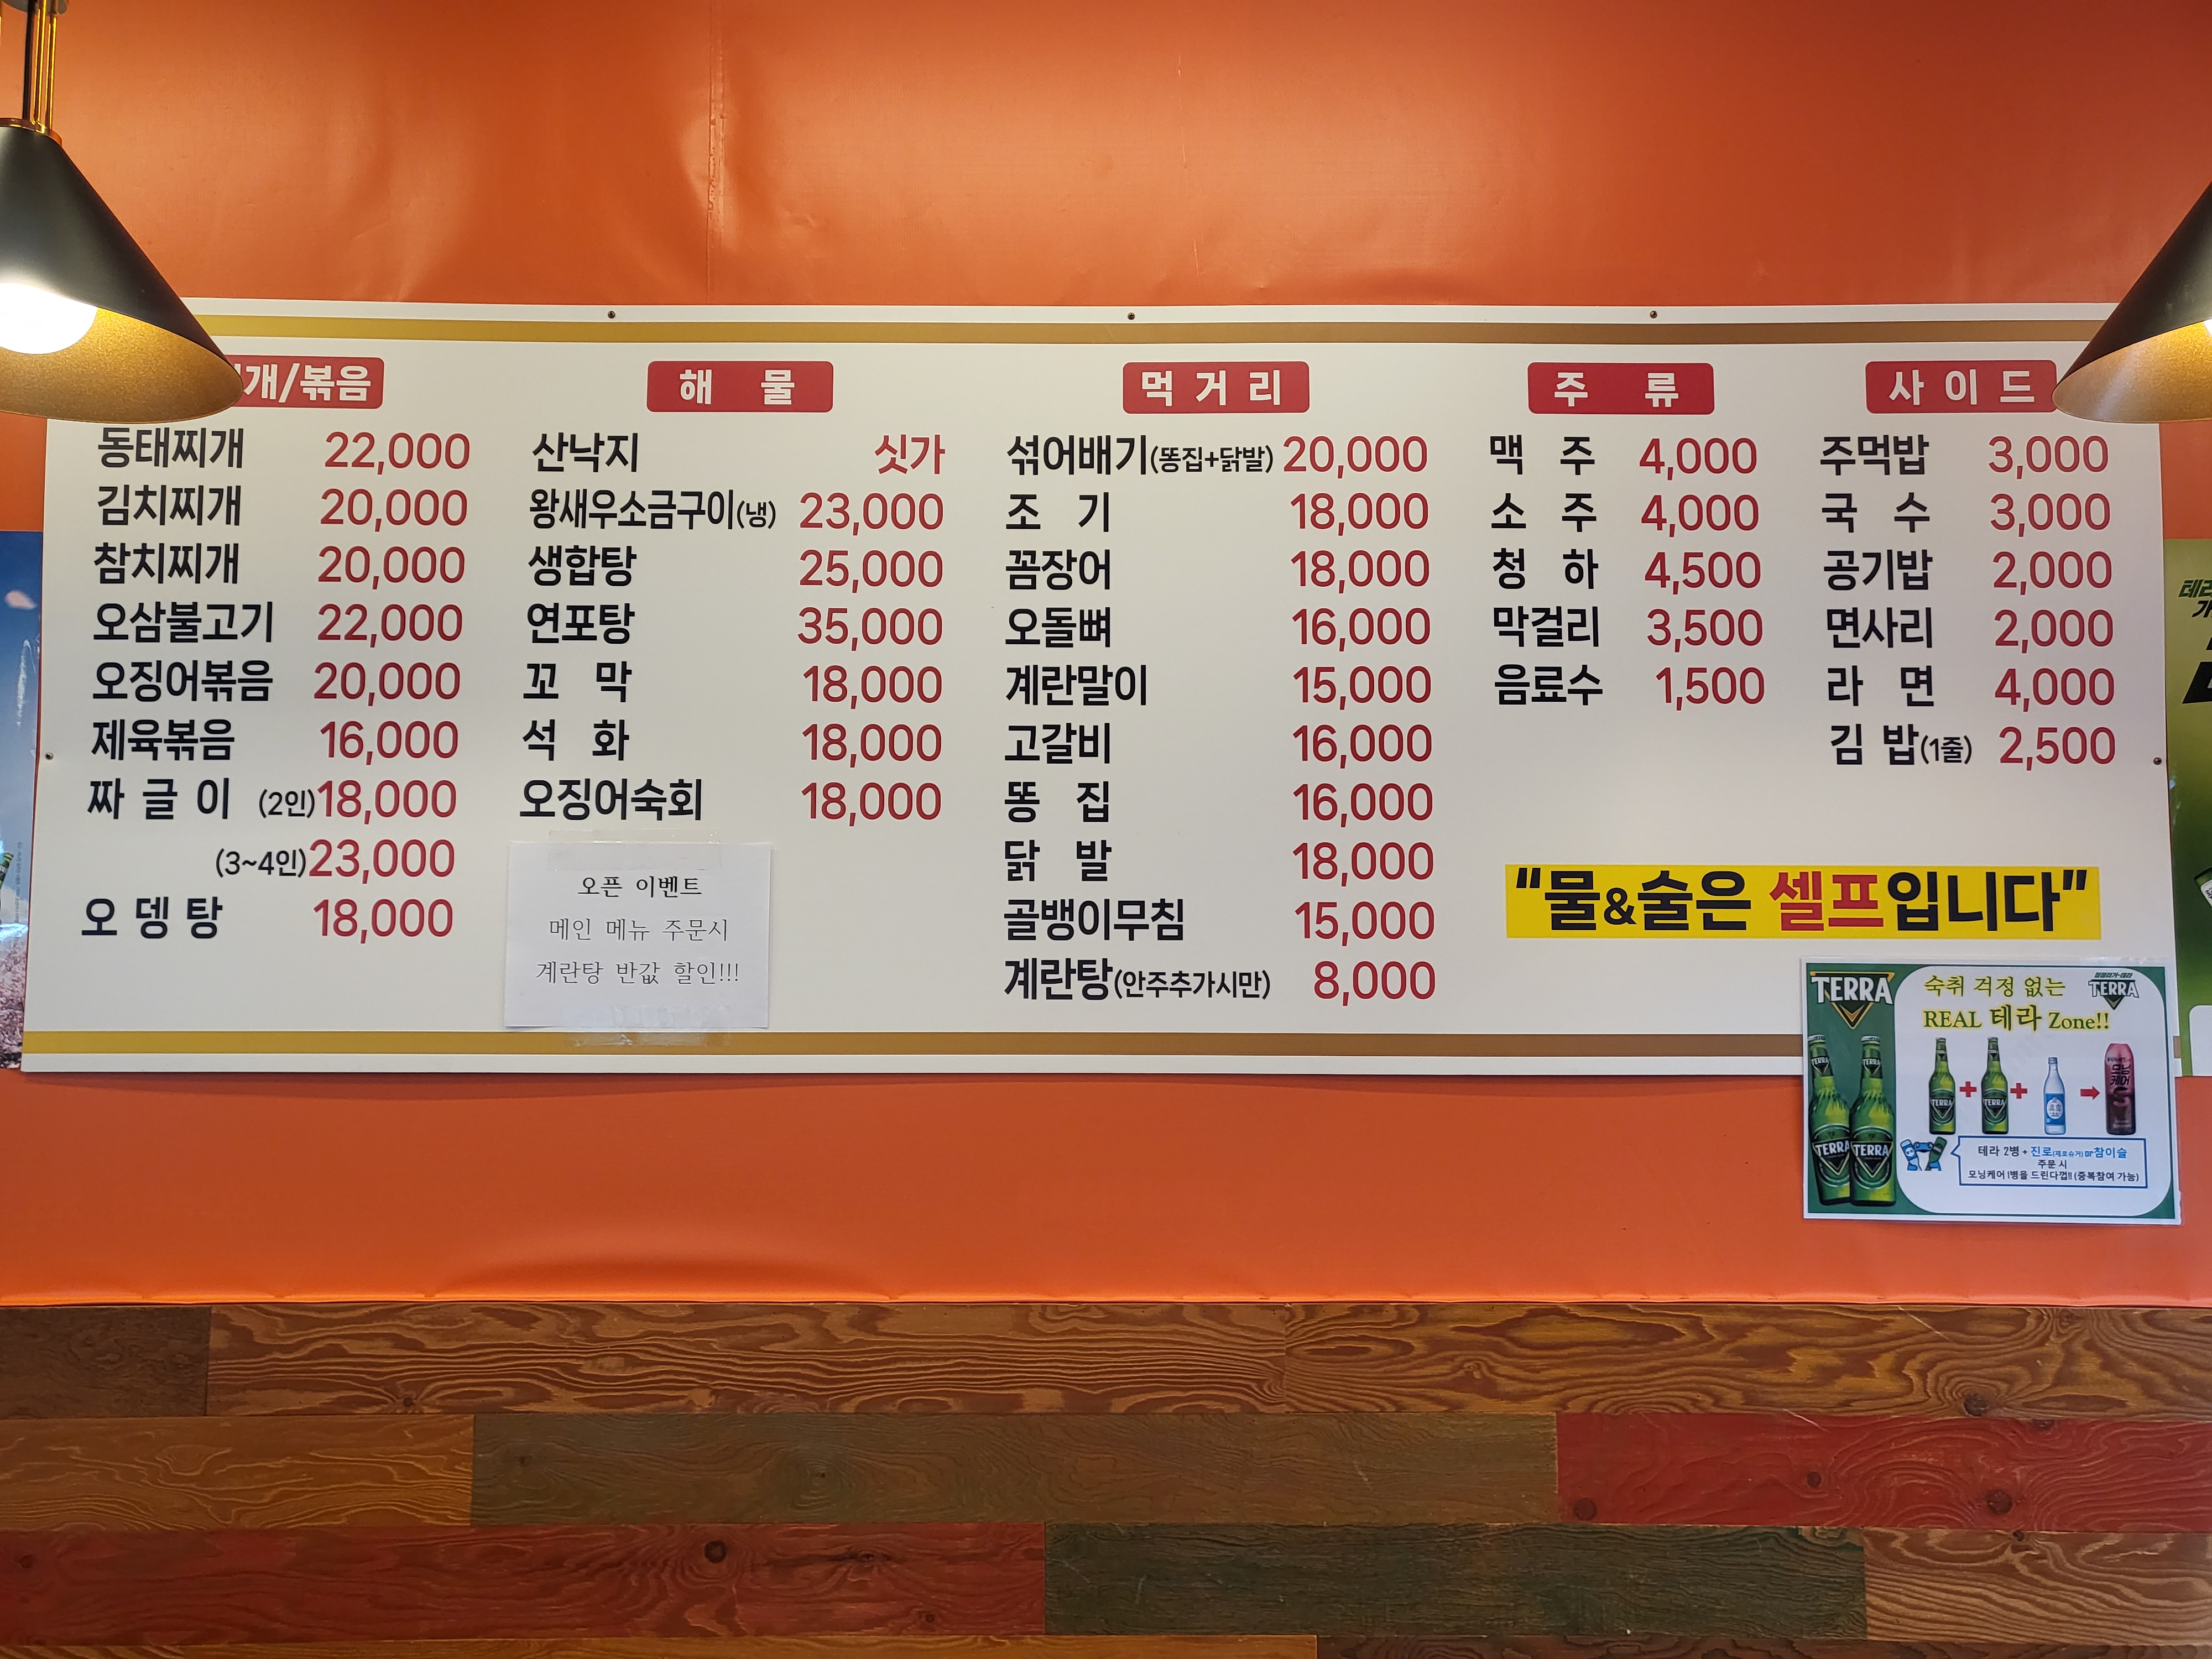 개/볶음
동태찌개 22,000
김치찌개 20,000
참치찌개 20,000
오삼불고기 22,000
오징어볶음 20,000
제육볶음 16,000
짜글이 (2인)18,000
(3~4인)23,000
오뎅탕 18,000
해물
산낙지 싯가
왕새우소금구이(냉) 23,000
생합탕 25,000
연포탕 35,000
꼬막 18,000
석화 18,000
오징어숙회 18,000
오픈 이벤트
메인 메뉴 주문시
계란탕 반값 할인!!!
먹거리
섞어배기(똥집+닭발) 20,000
조기 18,000
꼼장어 18,000
오돌뼈 16,000
계란말이 15,000
고갈비 16,000
똥집 16,000
닭발 18,000
골뱅이무침 15,000
계란탕(안주추가시만) 8,000
주류
맥주 4,000
소주 4,000
청하 4,500
막걸리 3,500
음료수 1,500
사이드
주먹밥 3,000
국수 3,000
공기밥 2,000
면사리 2,000
라면 4,000
김밥(1줄) 2,500
"물&술은 셀프입니다"
TERRA
숙취 걱정 없는
REAL 테라 Zone!!
TERRA
TERRA
TERRA
TERRA
TERRA
모닝케어
테라 2병 + 진로(제로슈거) or 참이슬
주문 시
모닝케어 1병을 드린다껍!! (중복참여 가능)